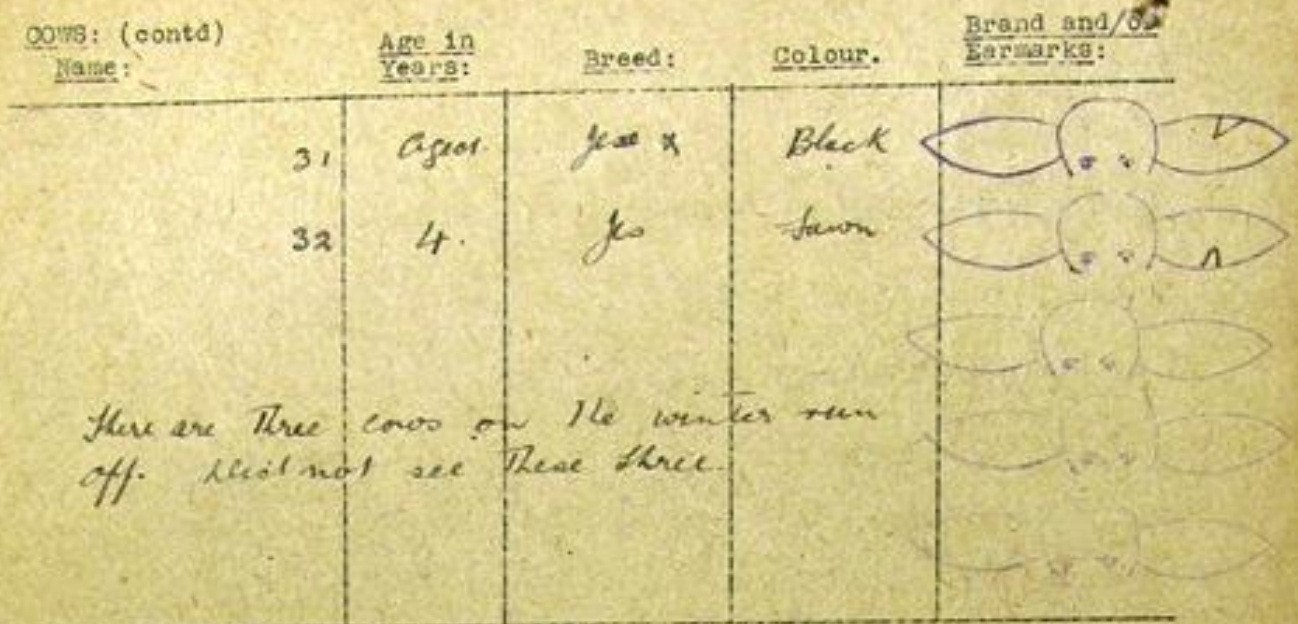 COWS: (contd)
Name:
Age in
Years:
Breed:
Colour.
Brand and/or
Earmarks:
31 Aged Jes x Black
32 4. Jes Fawn
There are three cows on the winter run
off. Did not see these three.